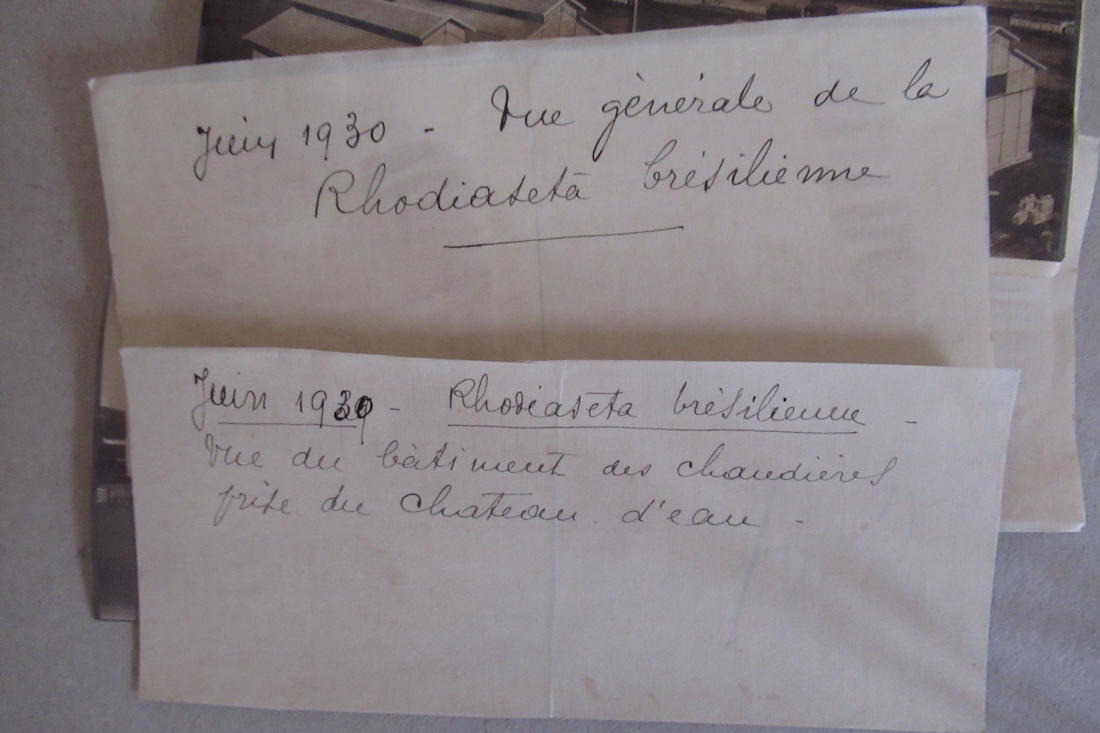 Juin 1930 - Vue générale de la
Rhodiasetā brésilienne
Juin 1930 - Rhodiaseta brésilienne -
Vue du bâtiment des chaudières
prise du chateau d'eau -